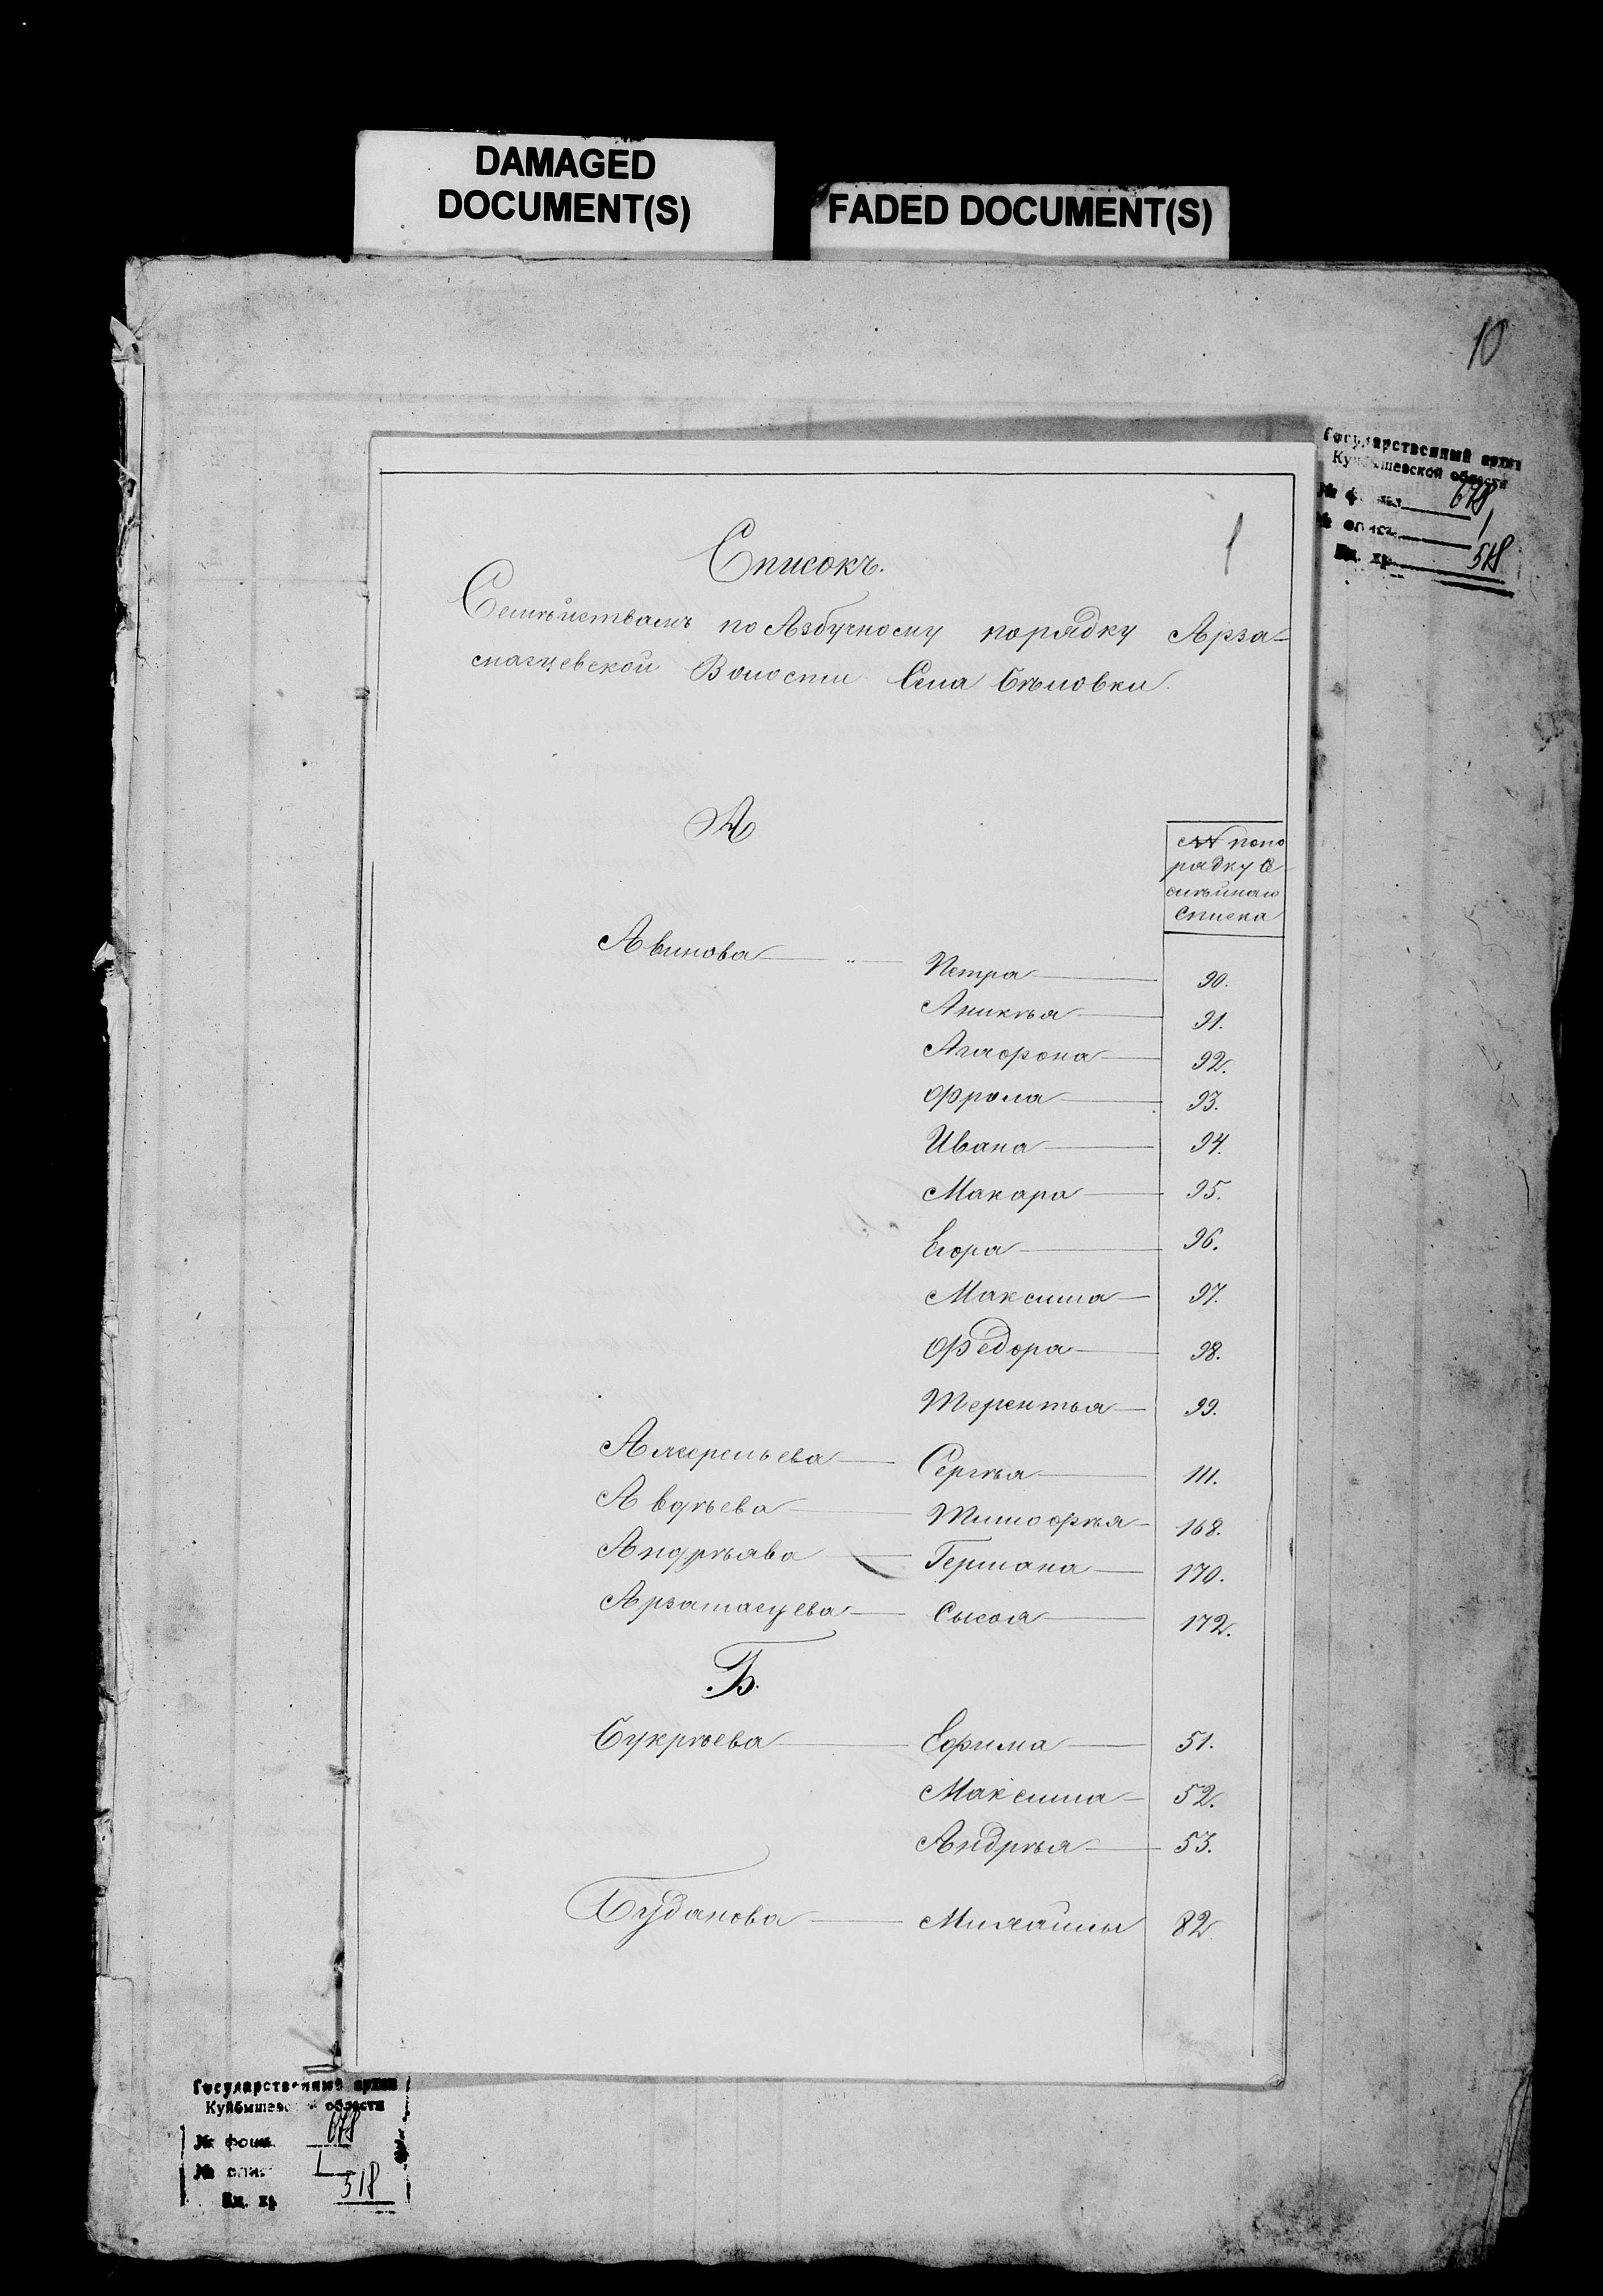 DAMAGED
DOCUMENT(S)
FADED DOCUMENT(S)
10
Государственный архив
Куйбышевской области
№ фонда 678
№ описи 1
Ед. хр. 518
1
Списокъ.
Семѣйствамъ по Азбучному порядку Арза-
масцевской Волости Села Бѣловки
А
№№ попо
рядку Се
мѣйнаго
Списка
Авинова Петра 90.
Аникѣя 91.
Агафона 92.
Фрола 93.
Ивана 94.
Макара 95.
Егора 96.
Максима 97.
Федора 98.
Терентья 99.
Сергѣя 111.
Авдѣева Тимофѣя 168.
Андрѣява Германа 170.
Арзамасцева Сысоя 172.
Б.
Букрѣева Ефима 51.
Максима 52.
Андрѣя 53.
Буданова Михайлы 82
Государственный архив
Куйбышевской области
№ фонда 678
№ описи 1
Ед. хр 518